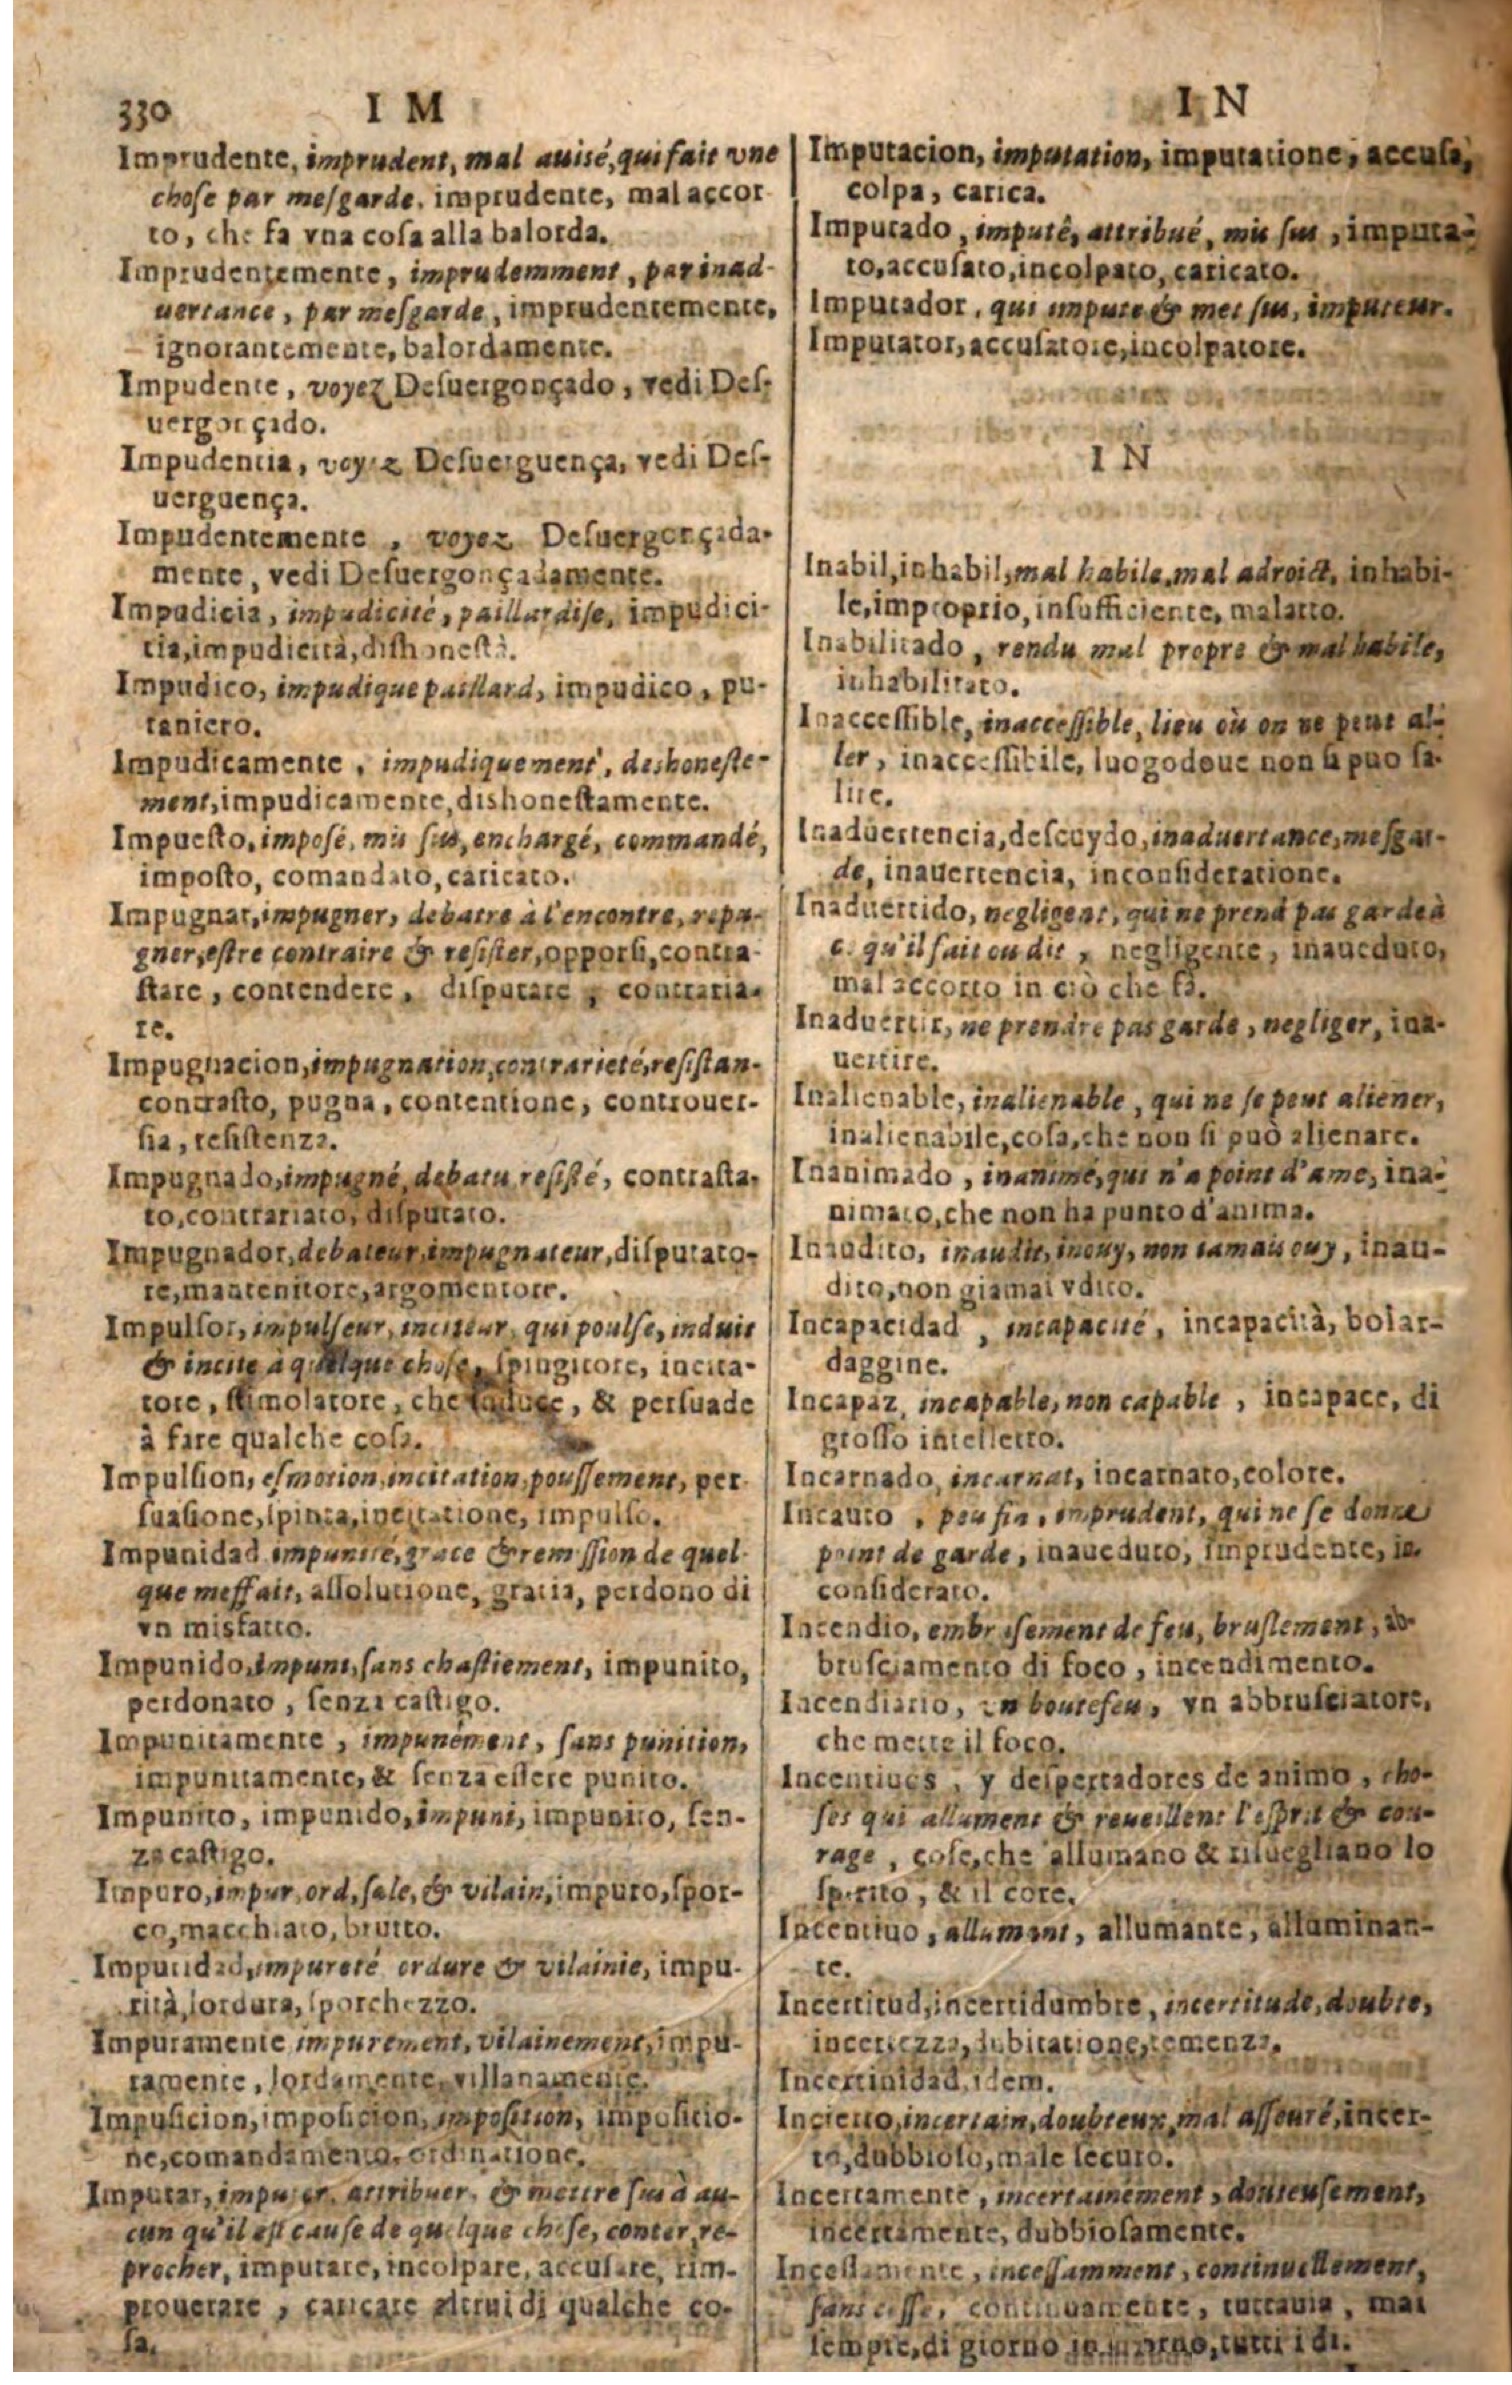 330 I M
Imprudente, imprudent, mal auisé, qui fait vne
chose par mesgarde, imprudente, mal accor
to, che fa vna cosa alla balorda.
Imprudentemente, imprudemment, par inad-
uertance, par mesgarde, imprudentemente,
ignorantemente, balordamente.
Impudente, voyez Desuergonçado, vedi Des-
uergonçido.
Impudencia, voyez Desuerguença, vedi Des-
uerguença.
Impudentemente, voyez Desuergonçada-
mente, vedi Desuergonçadamente.
Impudicia, impudicité, paillardise, impudici-
tia, impudicità, dishonestà.
Impudico, impudique paillard, impudico, pu-
taniero.
Impudicamente, impudiquement, deshoneste-
ment, impudicamente, dishonestamente.
Impuesto, imposé, mis sus, enchargé, commandé,
imposto, comandato, caricato.
Impugnar, impugner, debatre à l'encontre, repu-
gner, estre contraire & resister, opporsi, contra-
stare, contendere, disputare, contraria-
re.
Impugnacion, impugnation, contrarieté, resistan-
contrasto, pugna, contentione, controuer-
sia, resistenza.
Impugnado, impugné, debatu resisté, contrasta-
to, contrariato, disputato.
Impugnador, debateur, impugnateur, disputato-
re, mantenitore, argomentore.
Impulsor, impulseur, inciteur, qui poulse, induit
& incite à quelque chose, spingitore, incita-
tore, stimolatore, che induce, & persuade
à fare qualche cosa.
Impulsion, esmotion, incitation, poussement, per
suasione, spinta, incitatione, impulso.
Impunidad impunité, grace & remission de quel
que meffait, assolutione, gratia, perdono di
vn misfatto.
Impunido, impuni, sans chastiement, impunito,
perdonato, senza castigo.
Impunitamente, impunément, sans punition,
impunitamente, & senza essere punito.
Impunito, impunido, impuni, impunito, sen-
za castigo.
Impuro, impur, ord, sale, & vilain, impuro, spor-
co, macchiato, brutto.
Impuridad, impureté ordure & vilainie, impu-
rità, lordura, sporchezzo.
Impuramente impurement, vilainement, impu-
ramente, lordamente, villanamente.
Impusicion, imposicion, imposition, impositio-
ne, comandamento, ordinatione.
Imputar, imputer, attribuer, & mettre sus à au-
cun qu'il est cause de quelque chose, conter, re-
procher, imputare, incolpare, accusare, rim-
prouerare, caricare altrui di qualche co-
sa.
I N
Imputacion, imputation, imputatione, accusa,
colpa, carica.
Imputado, imputé, attribué, mis sus, imputa-
to, accusato, incolpato, caricato.
Imputador, qui impute & met sus, imputeur.
Imputator, accusatore, incolpatore.
I N
Inabil, inhabil, mal habile, mal adroict, inhabi-
le, improprio, insufficiente, malatto.
Inabilitado, rendu mal propre & mal habile,
inhabilitato.
Inaccessible, inaccessible, lieu où on ne peut al-
ler, inaccessibile, luogo doue non si puo sa-
lire.
Inaduertencia, descuydo, inaduertance, mesgar-
de, inauertencia, inconsideratione.
Inaduertido, negligent, qui ne prend pas garde à
ce qu'il fait ou dit, negligente, inaueduto,
mal accorto in ciò che fà.
Inaduertir, ne prendre pas garde, negliger, ina-
uertire.
Inalienable, inalienable, qui ne se peut aliener,
inalienabile, cosa, che non si può alienare.
Inanimado, inanimé, qui n'a point d'ame, ina-
nimato, che non ha punto d'anima.
Inaudito, inaudit, inouy, non iamais ouy, inau-
dito, non giamai vdito.
Incapacidad, incapacité, incapacità, bolar-
daggine.
Incapaz, incapable, non capable, incapace, di
grosso intelletto.
Incarnado, incarnat, incarnato, colore.
Incauto, peu fin, imprudent, qui ne se donne
point de garde, inaueduto, imprudente, in-
considerato.
Incendio, embrasement de feu, bruslement, ab-
brusciamento di foco, incendimento.
Incendiario, vn boutefeu, vn abbrusciatore,
che mette il foco.
Incentiues, y despertadores de animo, cho-
ses qui allument & reueillent l'esprit & cou-
rage, cose, che allumano & risuegliano lo
spirito, & il core.
Incentiuo, allumant, allumante, alluminan-
te.
Incertitud, incertidumbre, incertitude, doubte,
incertezza, dubitatione, temenza.
Incertinidad, idem.
Incierto, incertain, doubteux, mal asseuré, incer-
to, dubbioso, male securo.
Incertamente, incertainément, douteusement,
incertamente, dubbiosamente.
Incessamente, incessamment, continuellement,
sans cesse, continuamente, tuttauia, mai
sempre, di giorno in giorno, tutti i di.